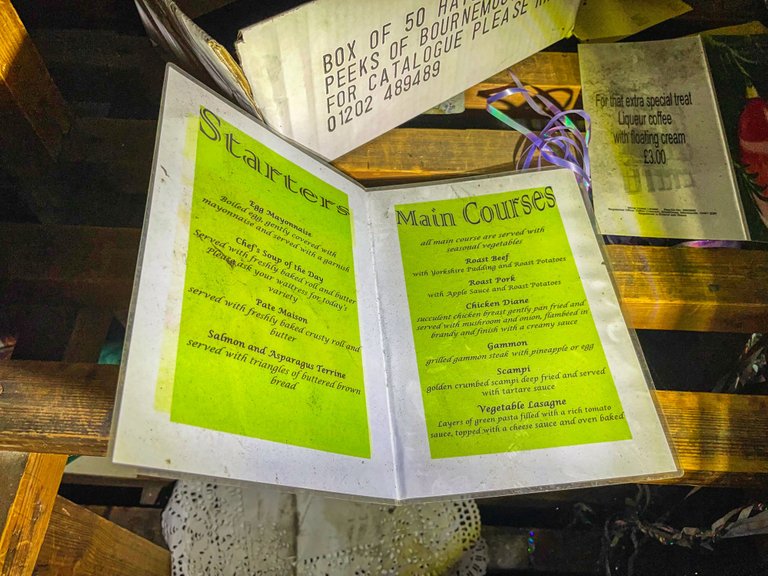 BOX OF 50
PEEKS OF
FOR CATALOGUE PLEASE
01202 489489
For that extra special treat
Liqueur coffee
with floating cream
£3.00
Starters
Egg Mayonnaise
Boiled egg, gently covered with
mayonnaise and served with a garnish
Chef's Soup of the Day
Served with freshly baked roll and butter
Please ask your waitress for today's
variety
Pate Maison
served with freshly baked crusty roll and
butter
Salmon and Asparagus Terrine
served with triangles of buttered brown
bread
Main Courses
all main course are served with
seasonal vegetables
Roast Beef
with Yorkshire Pudding and Roast Potatoes
Roast Pork
with Apple Sauce and Roast Potatoes
Chicken Diane
succulent chicken breast gently pan fried and
served with mushroom and onion, flambéed in
brandy and finish with a creamy sauce
Gammon
grilled gammon steak with pineapple or egg
Scampi
golden crumbed scampi deep fried and served
with tartare sauce
Vegetable Lasagne
Layers of green pasta filled with a rich tomato
sauce, topped with a cheese sauce and oven baked